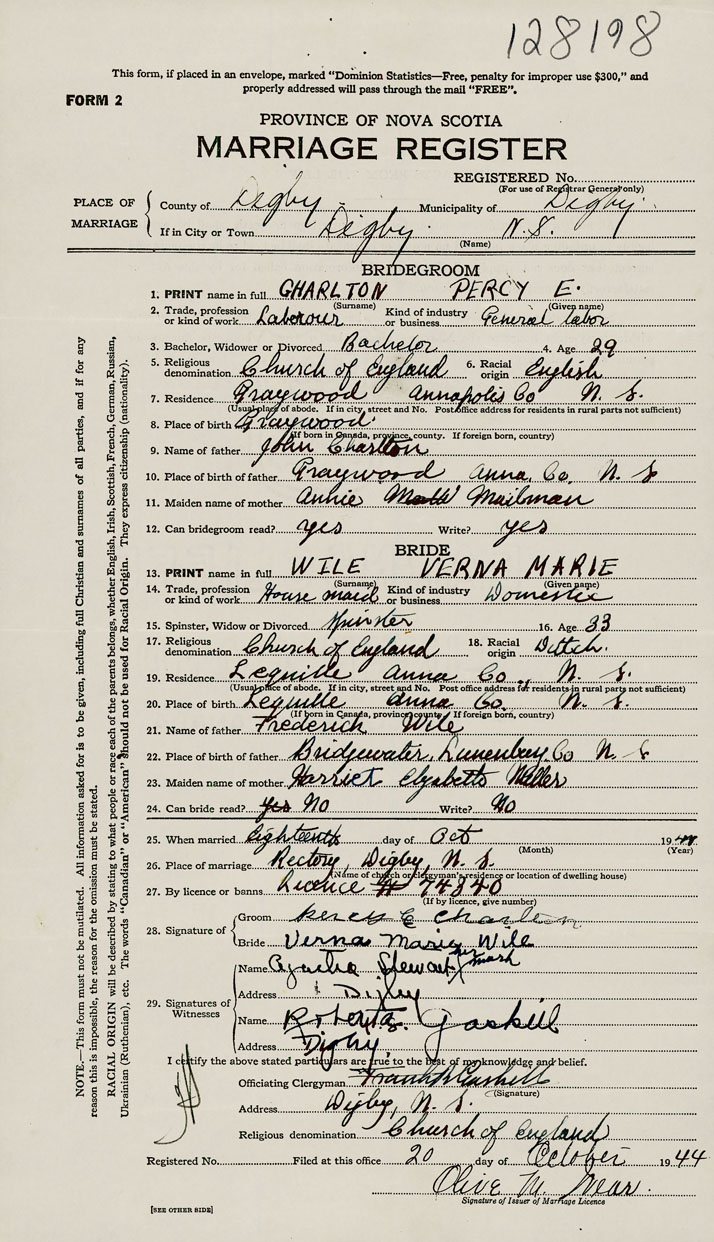 128198
This form, if placed in an envelope, marked "Dominion Statistics—Free, penalty for improper use $300," and
properly addressed will pass through the mail "FREE".
FORM 2
PROVINCE OF NOVA SCOTIA
MARRIAGE REGISTER
REGISTERED No.
(For use of Registrar General only)
PLACE OF MARRIAGE
County of Digby Municipality of Digby
If in City or Town Digby N.S.
(Name)
BRIDEGROOM
1. PRINT name in full CHARLTON PERCY E.
(Surname) (Given name)
2. Trade, profession or kind of work Labourer Kind of industry or business General labor
3. Bachelor, Widower or Divorced Bachelor 4. Age 29
5. Religious denomination Church of England 6. Racial origin English
7. Residence Graywood Annapolis Co N. S.
(Usual place of abode. If in city, street and No. Post office address for residents in rural parts not sufficient)
8. Place of birth Graywood
(If born in Canada, province, county. If foreign born, country)
9. Name of father John Charlton
10. Place of birth of father Graywood Anna. Co. N. S
11. Maiden name of mother Annie Mailman
12. Can bridegroom read? yes Write? yes
BRIDE
13. PRINT name in full WILE VERNA MARIE
(Surname) (Given name)
14. Trade, profession or kind of work House maid Kind of industry or business Domestic
15. Spinster, Widow or Divorced Spinster 16. Age 33
17. Religious denomination Church of England 18. Racial origin Dutch.
19. Residence Lequille Anna Co., N. S.
(Usual place of abode. If in city, street and No. Post office address for residents in rural parts not sufficient)
20. Place of birth Lequille Anna Co. N. S.
(If born in Canada, province, county. If foreign born, country)
21. Name of father Frederich Wile
22. Place of birth of father Bridgewater, Lunenburg Co N. S
23. Maiden name of mother Harriet Elyzabetts
24. Can bride read? Yes No Write? No
25. When married Eighteenth day of Oct 1944
(Month) (Year)
26. Place of marriage Rectory, Digby, N. S.
(Name of church or clergyman's residence or location of dwelling house)
27. By licence or banns Licence # 74840
(If by licence, give number)
28. Signature of
Groom Percy E Charlton
Bride Verna Marie Wile
her X mark
29. Signatures of Witnesses
Name Agatha Stewart
Address Digby
Name Roberta Gaskill
Address Digby
I certify the above stated particulars are true to the best of my knowledge and belief.
Officiating Clergyman Gaskill
(Signature)
Address Digby, N. S.
Religious denomination Church of England
Registered No. Filed at this office 20 day of October 1944
Olive M.
Signature of Issuer of Marriage Licence
[SEE OTHER SIDE]
NOTE.—This form must not be mutilated. All information asked for is to be given, including full Christian and surnames of all parties, and if for any
reason this is impossible, the reason for the omission must be stated.
RACIAL ORIGIN will be described by stating to what people or race each of the parents belongs, whether English, Irish, Scottish, French, German, Russian,
Ukrainian (Ruthenian), etc. The words "Canadian" or "American" should not be used for Racial Origin. They express citizenship (nationality).